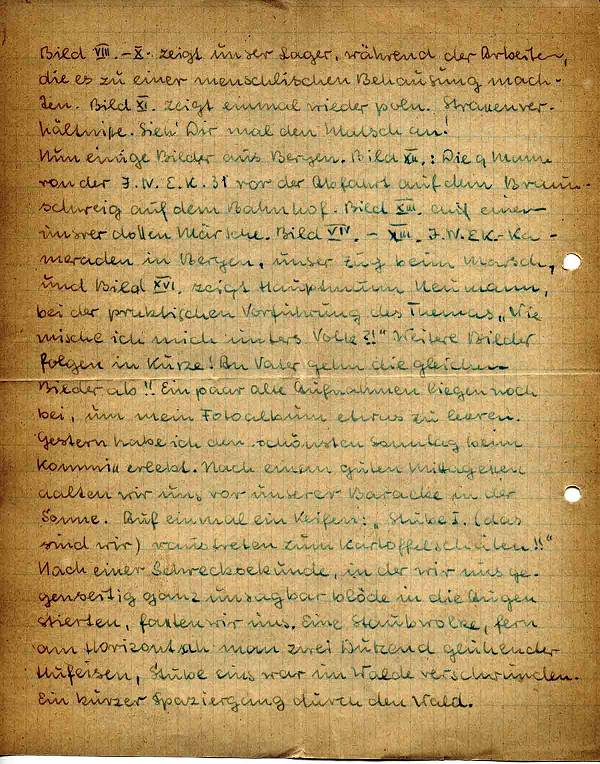 Bild VIII. – X. zeigt unser Lager, während der Arbeiten,
die es zu einer menschlischen Behausung mach-
ten. Bild XI. zeigt einmal wieder poln. Straßenver-
hältniße. Sieh' Dir mal den Matsch an!
Nun einige Bilder aus Bergen. Bild XII.: Die 9 Mann
von der J.N.E.K. 31 vor der Abfahrt auf dem Braun-
schweig auf dem Bahnhof. Bild XIII. auf einem
unsrer dollen Märsche. Bild – J.N.EK.-Ka-
meraden in Bergen, unser Zug beim Marsch,
und Bild XVI. zeigt Hauptmann Neumann,
bei der praktischen Vorführung des Themas „Wie
mische ich mich unters Volk?!" Weitere Bilder
folgen in Kürze! An Vater gehn die gleichen
Bilder ab!! Ein paar alte Aufnahmen liegen noch
bei, um mein Fotoalbum etwas zu leeren.
Gestern habe ich den schönsten Sonntag beim
Kommiß erlebt. Nach einem guten Mittagessen
aalten wir uns vor unserer Baracke in der
Sonne. Auf einmal ein Keifen: „Stube I. (das
sind wir) raustreten zum Kartoffelschälen!!"
Nach einer Schrecksekunde, in der wir uns ge-
genseitig ganz unsagbar blöde in die Augen
stierten, faßten wir uns. Eine Staubwolke, fern
am Horizont sah man zwei Dutzend glühender
Hufeisen, Stube eins war im Walde verschwunden.
Ein kurzer Spaziergang durch den Wald.